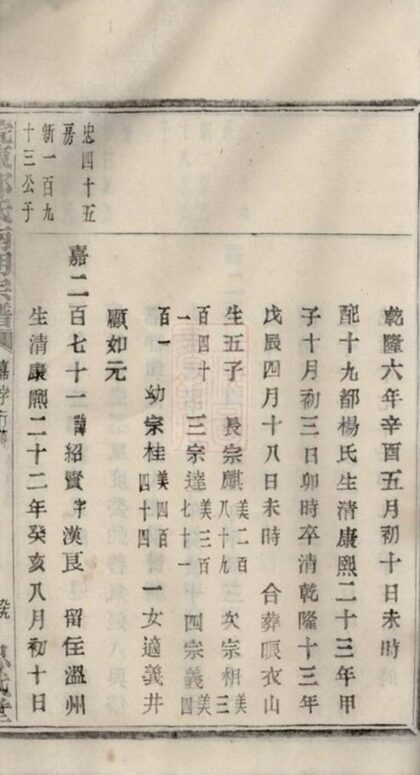 乾隆六年辛酉五月初十日未時
配十九都楊氏生清康熙二十三年甲
子十月初三日卯時卒清乾隆十三年
戊辰四月十八日未時 合葬暝衣山
生五子 長宗麒美二百八十九 次宗相美三百四十一 三宗達美三百七十一 四宗義美四百一 幼宗桂美四百四十四 一女適義井
顧如元
忠四十五房
新一百九十三公子
嘉二百七十一諱紹賢字漢良 留住溫州
生清康熙二十二年癸亥八月初十日
氏 明宗譜
嘉字行